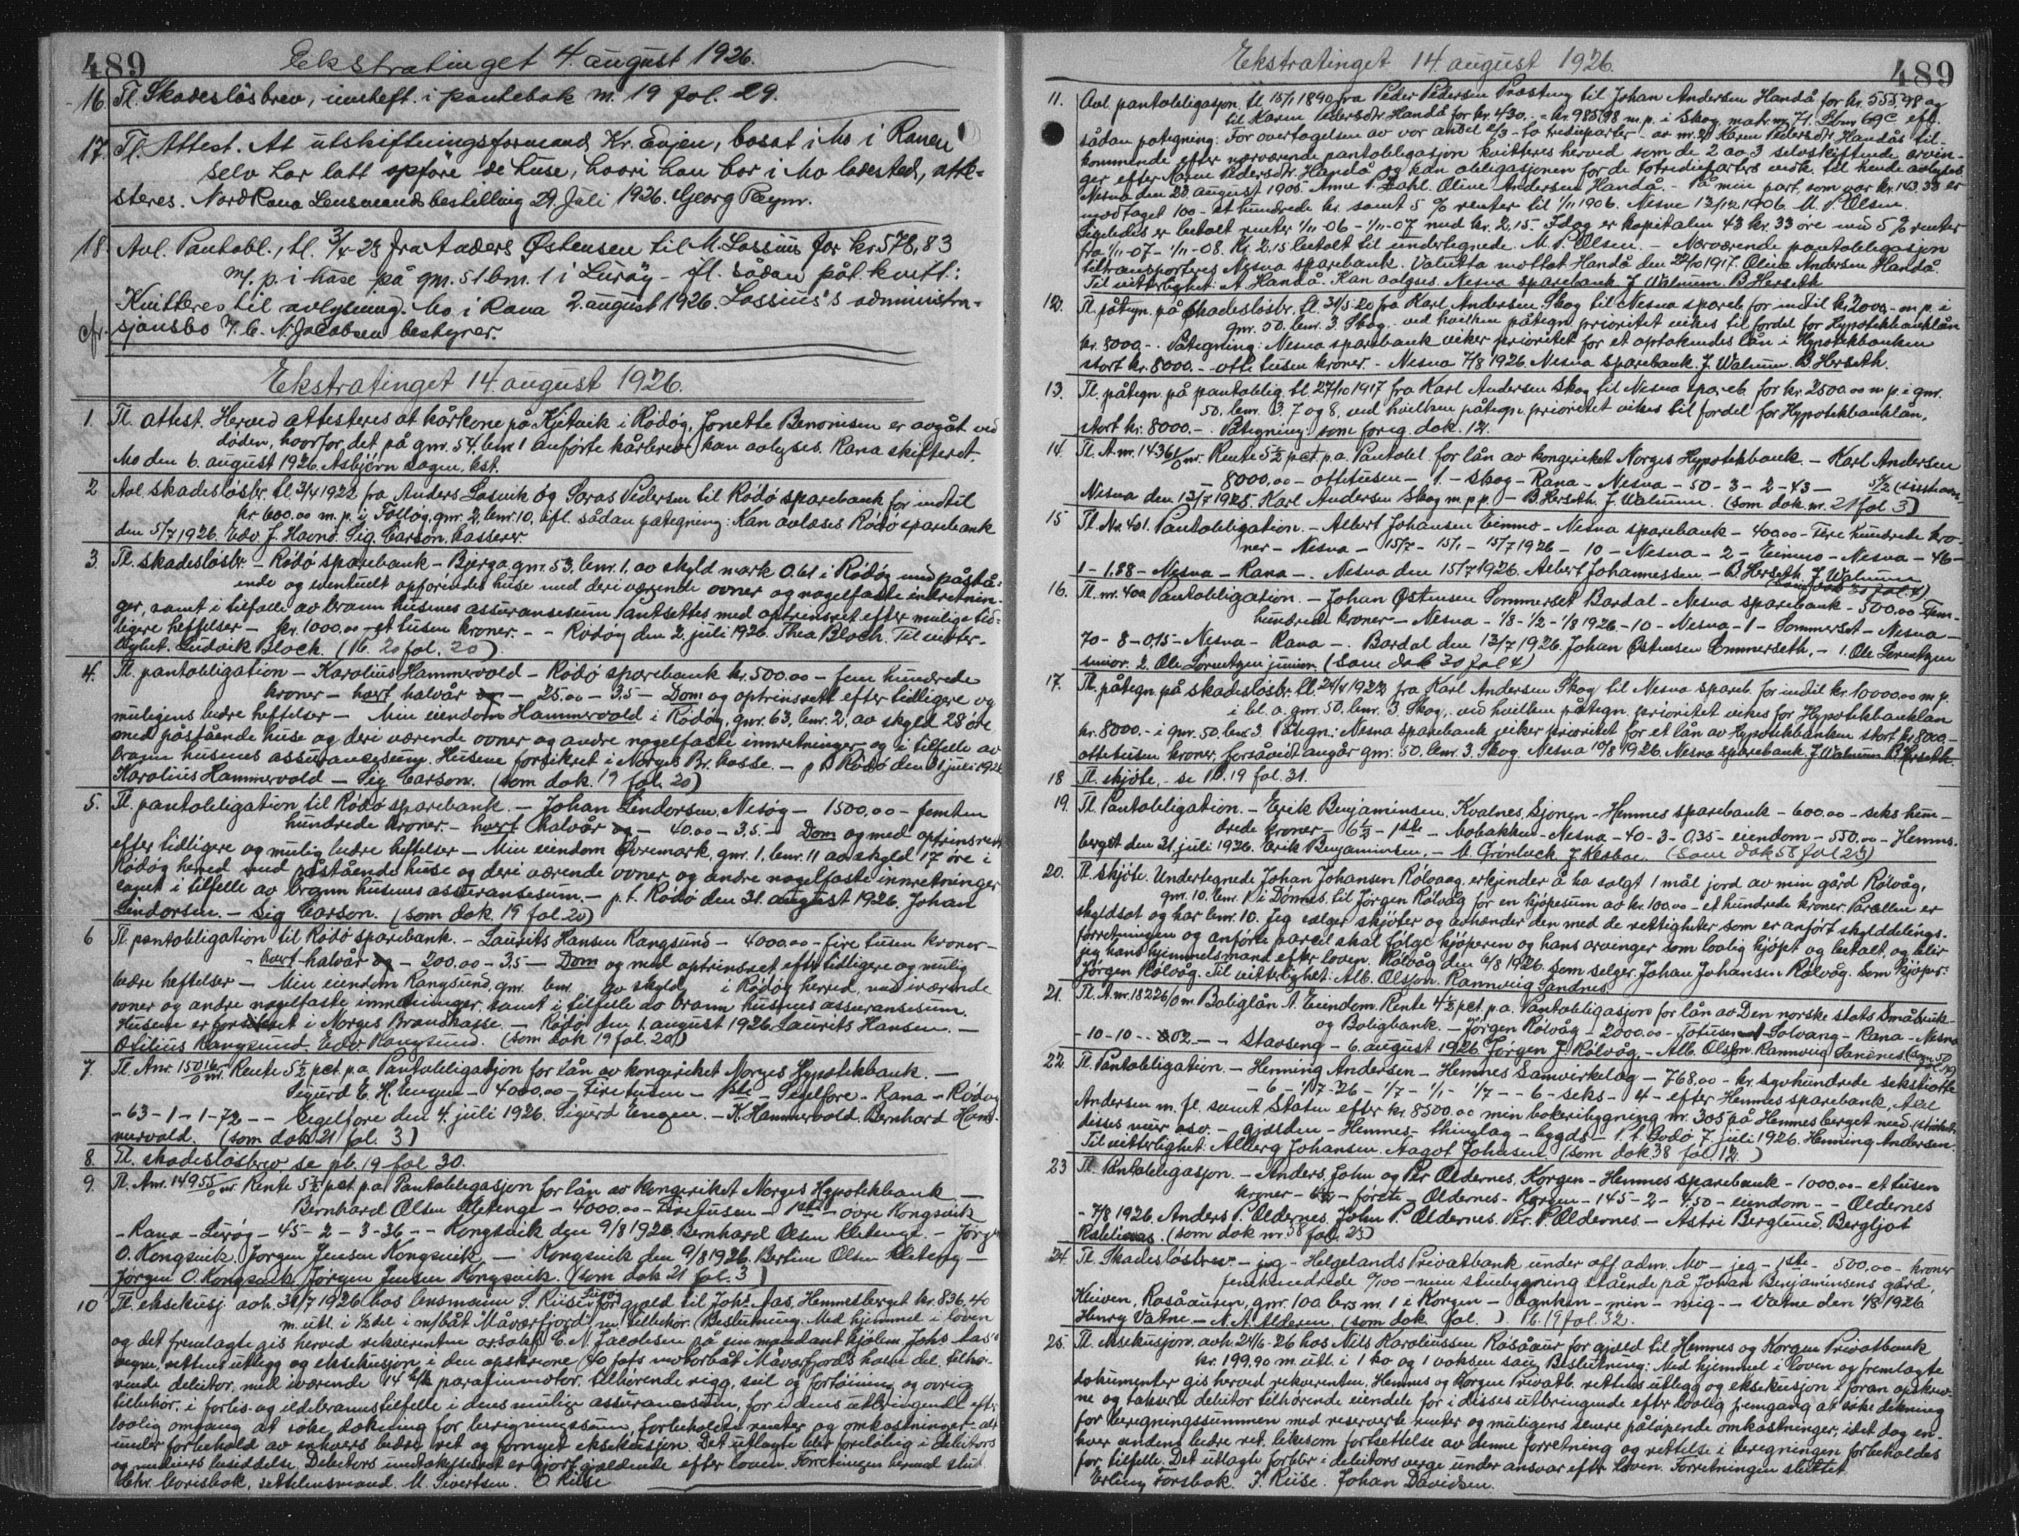 489
Ekstratinget 4. august 1926.
16. Tl. Skadesløsbrev, innheft. i pantebok nr. 19 fol. 29.
17. Tl. Attest. At utskiftningsformand Kr. Evjen, bosat i Mo i Ranen
selv har latt opføre de huse, hvori han bor i Mo ladested, atte-
steres. Nord Rana Lensmandsbestilling 29 Juli 1926. Georg Reym.
18. Avl. Pantobl., tl. 3/4-23 fra Anders Østensen til M. Lossius for kr 578,83
m. p. i huse på gnr. 51 bnr. 1 i Lurøy - ifl. sådan påt. kvitt:
Kvitteres til avlysning. Mo i Rana 2. august 1926. Lossius's administra-
cfr. sjonsbo N. Jacobsen bestyrer.
Ekstratinget 14 august 1926.
1. Tl. attest. Herved attesteres at kårkone på Kjetvik i Rødøy, Jonette Benonisen er avgåt ved
døden, hvorfor det på gnr. 54, bnr 1 anførte kårbrev kan avlyses. Rana skifteret.
Mo den 6. august 1926. Asbjørn aagen, kst.
2 Avl skadesløsbr. tl. 3/4 1922 fra Anders Lasvik og Saras Pedersen til Rødø sparebank for inntil
kr 600.00 m. p. i gnr. 2, bnr. 10, ifl. sådan påtegning: Kan avlæses Rødø sparebank
den 5/7 1926. Edv. J. Havnø. Sig. Carson. kasserer.
3. Tl. skadesløsbr - Rødø sparebank - Bjerga gnr. 53, bnr. 1, av skyld mark 0.61 i Rødøy med påstå-
ende og eventuelt opførendes huse med deri værende ovner og nagelfaste indretnin-
ger, samt i tilfælde av brann husenes assuransesum. Pantsettes med optrinsret efter mulige tid-
ligere heftelser - kr. 1000,00 - et tusen kroner. - - Rødøy den 2. juli 1926. Thea Bloch. Til vitter-
lighet. Ludvik Bloch. (Pb. 20 fol. 20)
4. Tl. pantobligation - Karolius Hammervold - Rødø sparebank kr. 500.00 - fem hundrede
kroner - hvert halvår - 25.00 - 3.5 - Dom og optrinsrett efter tidligere og
muligens bedre heftelser - Min eiendom Hammervold i Rødøy, gnr. 63, bnr. 2, av skyld 28 øre
med påstående huse og deri værende ovner og andre nagelfaste innretninger og i tilfelle av
brann husenes assuransesum. Husene forsikret i Norges Br. kasse. - p. t. Rødø den juli 1926
Karolius Hammervold - Sig Carson. (som dok. 19 fol. 20)
5. Tl. pantobligation til Rødø sparebank. - Johan Lindorsen, Nesøy - 1500,00 - femten
hundrede kroner - hvert halvår og - 40.00 - 3,5 - Dom og med optrinsrett
efter tidligere og mulig bedre heftelser - Min eiendom Øvremark, gnr. 1, bnr. 11 av skyld 17 øre i
Rødøy herred med påstående huse og deri værende ovner og andre nagelfaste innretninger
samt i tilfelle av brann husenes assuransesum. - p. t. Rødø den 31. august 1926. Johan
Lindorsen. - Sig Carson. (som dok 19 fol. 20)
6 Tl. pantobligation til Rødø sparebank. - Laurits Hansen Rangsund - 4000.00 - fire tusen kroner -
- hvert halvår og - 200.00 - 3,5 - Dom og med optrinsret efter tidligere og mulig
bedre heftelser - Min eiendom Rangsund, gnr. bnr. av skyld i Rødøy herred, med iværende
ovner og andre nagelfaste innretninger, samt i tilfelle av brann husenes assuransesum.
Husene er forsikret i Norges Brandkasse. - Rødø den 1. august 1926 Laurits Hansen. -
Otilius Rangsund. Edv Rangsund. (som dok 19 fol. 20)
7 Tl. Anr. 15016/0 nr. Rente 5 1/2 pct. p.a. Pantobligasjon for lån av kongeriket Norges Hypotekbank. -
Sigurd E. H. Engen - 4000.00 - Firetusen - 1ste - Segelfore - Rana - Rødøy
- 63 - 1 - 1 - 72 - - Segelfore den 4. juli 1926. Sigurd Engen. - K. Hammervold. Bernhard Ham-
mervold. (som dok 21 fol. 3)
8. Tl. skadesløsbrev se pb. 19 fol 30.
9. Tl. Anr. 14955/0 nr Rente 5 1/2 pct p.a. Pantobligasjon for lån av kongeriket Norges Hypotekbank -
Bernhard Olsen Kletenge - 4000.00 - Firetusen - 1ste - øvre Kongsvik
- Rana - Lurøy - 45 - 2 - 3 - 36 - - Kongsvik den 9/8 1926 Bernhard Olsen Kletenge. - Jørgen
O. Kongsvik. Jørgen Jensen Kongsvik. - Kongsvik den 9/8 1926. Bertine Olsen Kleteng -
Jørgen O. Kongsvik. Jørgen Jensen Kongsvik. (som dok 21 fol. 3)
10 Tl. eksekusj. avh. 31/7 1926 hos lensmann S. Riise Lurøy for gjæld til Johs Aas, Hemnesberget kr. 836,40
m. utl. i 1/2 del i m/båt Måværfjord m. tilbehør. Beslutning. Med hjemmel i loven
og det fremlagte gis herved rekvirenten orsakf. C. N. Jacobsen på sin mandant kjøbm. Johs Aas'
vegne, rettens utlegg og eksekusjon i den opskrevne 40 fots motorbåt Måværfjords halve del, tilhø-
rende debitor, med iværende 14 hk parafinmotor, tilhørende rigg, seil og fortøining og øvrig
tilbehør, i forlis- og ildebrannstilfelle i dens mulige assuransesum, for i dens utbringende efter
lovlig omgang at søke dekning for beregningssum forbeholdt renter og omkostninger - alt
under forbehold av enhvers bedre ret og fornyet eksekusjon. Det utlagte blir foreløbig i debitors
og medeiers besiddelse. Debitors undtakelsesret er gjort gjældende efter loven. Forretningen hermed slut.
Chr. Forisbak, rettelensmand. M. Sivertsen. S Riise
489
Ekstratinget 14. august 1926.
11. Avl. pantobligasjon tl 15/1 1890 fra Peder Pedersen Præsteng til Johan Andersen Handå for kr. 555,98 og
til Karen Pedersdtr. Handå for kr. 430. - = kr. 985,98 m. p. i Skog, matr. nr. 71, Lbnr 69c efl.
sådan påtegning: For overtagelsen av vor andel 2/3 - to trediaparter - av nr. 2 Karen Pedersdtr. Handås til-
kommende efter nærværende pantobligasjon kvitteres herved som de 2 av 3 selvskiftende arvin-
ger efter Karen Pedersdtr. Handå og kan obligasjonen for de totrediaparters vedk. til hende avlyses.
Nesna den 23 august 1905. Anne P. Dahl. Oline Andersen Handå. - På min part, som var kr. 143.33 er
modtaget 100 - et hundrede kr. samt 5 % renter til 1/11 1906. Nesna 12/12 1906. M. P. Olsen.
Ligeledes er betalt renter 1/11-06 - 1/11-07 med kr. 2,15. Idag er kapitalen 43 kr. 33 øre med 5 % renter
fra 1/11-07 - 1/11-08 kr. 2.15 betalt til undertegnede. M. P. Olsen. - Nærværende pantobligasjon
tiltransporteres Nesna sparebank. Valutta mottat Handå den 22/10 1917. Oline Andersen Handå.
Til vitterlighet: A. Handå. Kan avlyses. Nesna sparebank J. Walnum. B Herseth
12. Tl. påtegn. på skadesløsbr. tl. 31/5-20 fra Karl Andersen Skog til Nesna spareb. for inntil kr. 2000. - m. p. i
gnr. 50. bnr. 3. Skog. - ved hvilken påtegn. prioritet vikes til fordel for Hypotekbanklån
kr. 8000. - . Påtegning: Nesna sparebank viker prioritet for et optakendes lån i Hypotekbanken
stort kr. 8000. - otte tusen kroner. - Nesna 7/8 1926. Nesna sparebank. J. Walnum. B. Herseth.
13. Tl. påtegn. på pantoblig. tl. 27/10 1917. fra Karl Andersen Skog til Nesna spareb. for kr. 2500.00 m p. i gnr.
50, bnr. 3. 7 og 8, ved hvilken påtegn. prioritet vikes til fordel for Hypotekbanklån,
stort kr. 8000. - . Påtegning: som foreg. dok. 12.
14. Tl. A. nr. 14361/0 nr. Rente 5 1/2 pct p.a. Pantobl. for lån av kongeriket Norges Hypotekbank. - Karl Andersen
- 8000.00 - ottitusen - 1. - Skog - Rana - Nesna - 50 - 3 - 2 - 43 -
Nesna den 13/7 1925. Karl Andersen Skog m. p. p - B. Herseth. J. Walnum. (som dok. nr. 21 fol 3)
15 Tl. No 401. Pantobligation. - Albert Johansen Einmo - Nesna sparebank - 400.00 - Fire hundrede kro-
ner - Nesna - 15/7 - 15/1 - 15/7 1926 - 10 - Nesna - 2 - Einmo - Nesna - 46 -
1 - 1.88 - Nesna - Rana - . Nesna den 15/7 1926. Albert Johannessen. - B Herseth. J. Walnum
(som dok 30 fol. 4)
16. Tl. nr. 400 Pantobligation. - Johan Østensen Sommerset Bardal - Nesna sparebank - 500.00 Fem
hundrede kroner - Nesna - 1/8 - 1/2 - 1/8 1926 - 10 - Nesna - 1 - Sommerset - Nesna -
70 - 8 - 0,15 - Nesna - Rana - Bardal den 13/7 1926. Johan Østensen Sommerseth. - 1. Ole Lorentzen
senior. 2. Ole Lorentzen junior. (som dok 30 fol 4)
17. Tl. påtegn. på skadesløsbr. tl. 24/4 1922 fra Karl Andersen Skog til Nesna spareb. for inntil kr. 10000.00 m. p.
i bl. a. gnr. 50, bnr. 3 Skog, ved hvilken påtegn. prioritet vikes for Hypotekbanklån
kr. 8000. - i gnr. 50, bnr. 3. Påtegn: Nesna sparebank viker prioritet for et lån av Hypotekbanken stort kr. 8000. -
ottetusen kroner, forsåvidt angår gnr. 50, bnr. 3. Skog. Nesna 10/8 1926. Nesna sparebank. J. Walnum. B. Herseth.
18 Tl. skjøte. - se Pb. 19 fol. 31.
19. Tl. Pantobligation. - Erik Benjaminsen, Kvalnes, Sjonen - Hemnes sparebank - 600.00 - seks hun-
drede kroner - 6 1/2 - 1ste - Mobakken - Nesna - 40 - 3 - 0,35 - eiendom - 550.00 - Hemnes-
berget den 21. juli 1926. Erik Benjaminsen. - M. Grønbeck J. Kosboe. (som dok 58 fol 23)
20. Tl. skjøte. Undertegnede Johan Johansen Rølvaag, erkjender å ha solgt 1 mål jord av min gård Rølvåg,
gnr. 10, bnr. 1 i Dønnes, til Jørgen Rølvåg for en kjøpesum av kr. 100.00 - et hundrede kroner. Parcellen er
skyldsat og har bnr. 10. Jeg sælger skjøter og avhænder den med de rettigheter som er anført skylddelings-
forretningen og anførte parcel skal følge kjøperen og hans arvinger som lovlig kjøpt og betalt, og blir
jeg hans hjemmelsmand efter loven. Rølvåg den 6/8 1926. Som selger Johan Johansen Rølvåg. Som kjøper:
Jørgen Rølvåg. Til vitterlighet. Alb. Olsson. Rannveig Sandnes
21. Tl. A. nr. 18226/0 nr. Boliglån A. Eiendom. Rente 4 1/2 pct. p.a. Pantobligasjon for lån av Den norske stats Småbruk-
og Boligbank. - Jørgen Rølvåg - 2000.00 - Totusen - Solvang - Rana - Nesna
- 10 - 10 - - 0.02 - - Stavseng - 6. august 1926 Jørgen J. Rølvåg - Alb. Olsson. Rannveig Sandnes
22. Tl. Pantobligation. - Henning Andersen - Hemnes samvirkelag - 768.00 - kr. syvhundrede sekstiotte
- 6 - 1/7-26 - 1/7 - 1/1 - 1/7 - - 6 - seks - 4 - efter Hemnes sparebank,
Andersen m. fl. samt Staten efter kr. 8500.00 min bakeribygning nr. 305 på Hemnesberget med
disses mer osv. - gjælden - Hemnes - thinglag - bygds - p. t. Bodø, 7. juli 1926. Henning Andersen.
Til vitterlighet. Alberg Johansen. Aagot Johnsen (som dok 38 fol. 12.)
23 Tl. Pantobligasjon. - Anders, John og Per Oldernes. Korgen - Hemnes sparebank - 1000.00 - et tusen
kroner - 6 1/2 - første - Oldernes - Korgen - 145 - 2 - 4,50 - eiendom - - Oldernes
- 7/8 1926. Anders P. Oldernes. John P. Oldernes. Per. P. Oldernes - Astri Berglund. Bergljot
(som dok nr. 58 fol. 23)
24. Tl. Skadesløsbrev - jeg - Helgelands Privatbank under off. adm. Mo - jeg - 1ste - 500.00 - kroner
femhundrede 0/100 - min stuebygning stående på Johan Benjaminsens gård
Rosåauren, gnr. 100 brs nr. 1 i Korgen - banken - min - mig - - Vatne den 1/8 1926
Henry Vatne - N. A. Alderen. (som dok fol. ). Pb. 19 fol. 32.
25. Tl. eksekusjon. avh. 24/6-26 hos Nils Karoliussen Rosåaur for gjæld til Hemnes og Korgen Privatbank
kr. 199,90 m. utl. i 1 ko og 1 voksen sau. Beslutning: Med hjemmel i loven og fremlagte
dokumenter gis herved rekvirenten, Hemnes og Korgen Privatb. rettens utlegg og eksekusjon i foran opskrev-
ne og takserte debitor tilhørende eiendele for i disses utbringende efter lovlig fremgang at søke dekning
for beregningssummen med reserverte renter og muligens senere påløpende omkostninger, idet dog en-
hver andens bedre ret, likesom fortsettelse av denne forretning og rettelse i beregningen forbeholdes
for tilfelle. Det utlagte forblir i debitors verge under ansvar efter loven. Forretningen sluttet.
Erling Forsbak. S. Riise. Johan Davidsen.